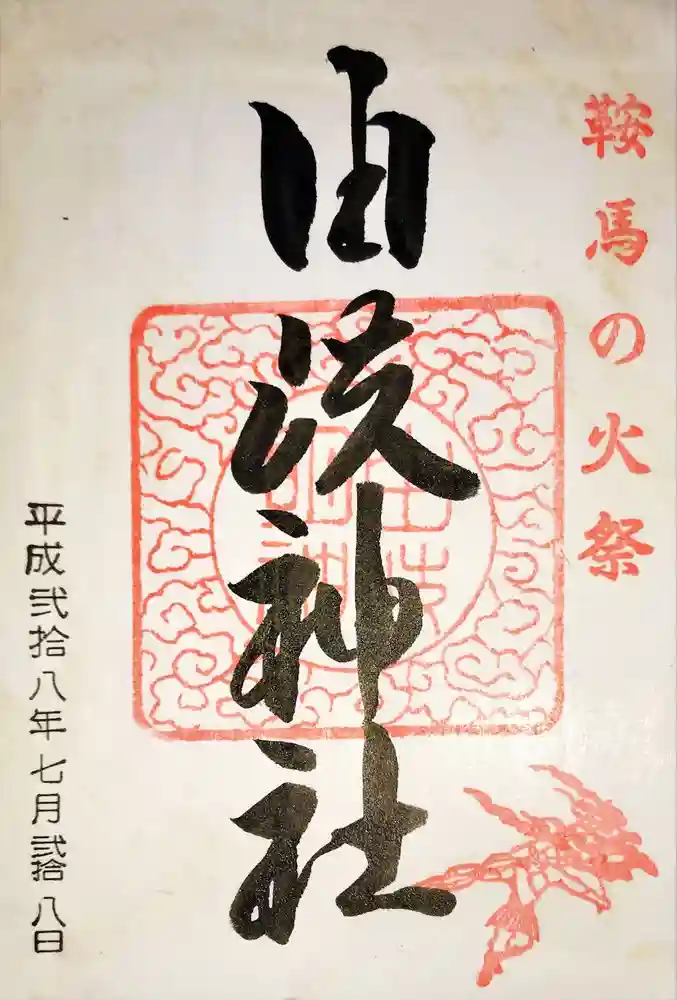 鞍馬の火祭
由岐神社
平成弐拾八年七月弐拾八日